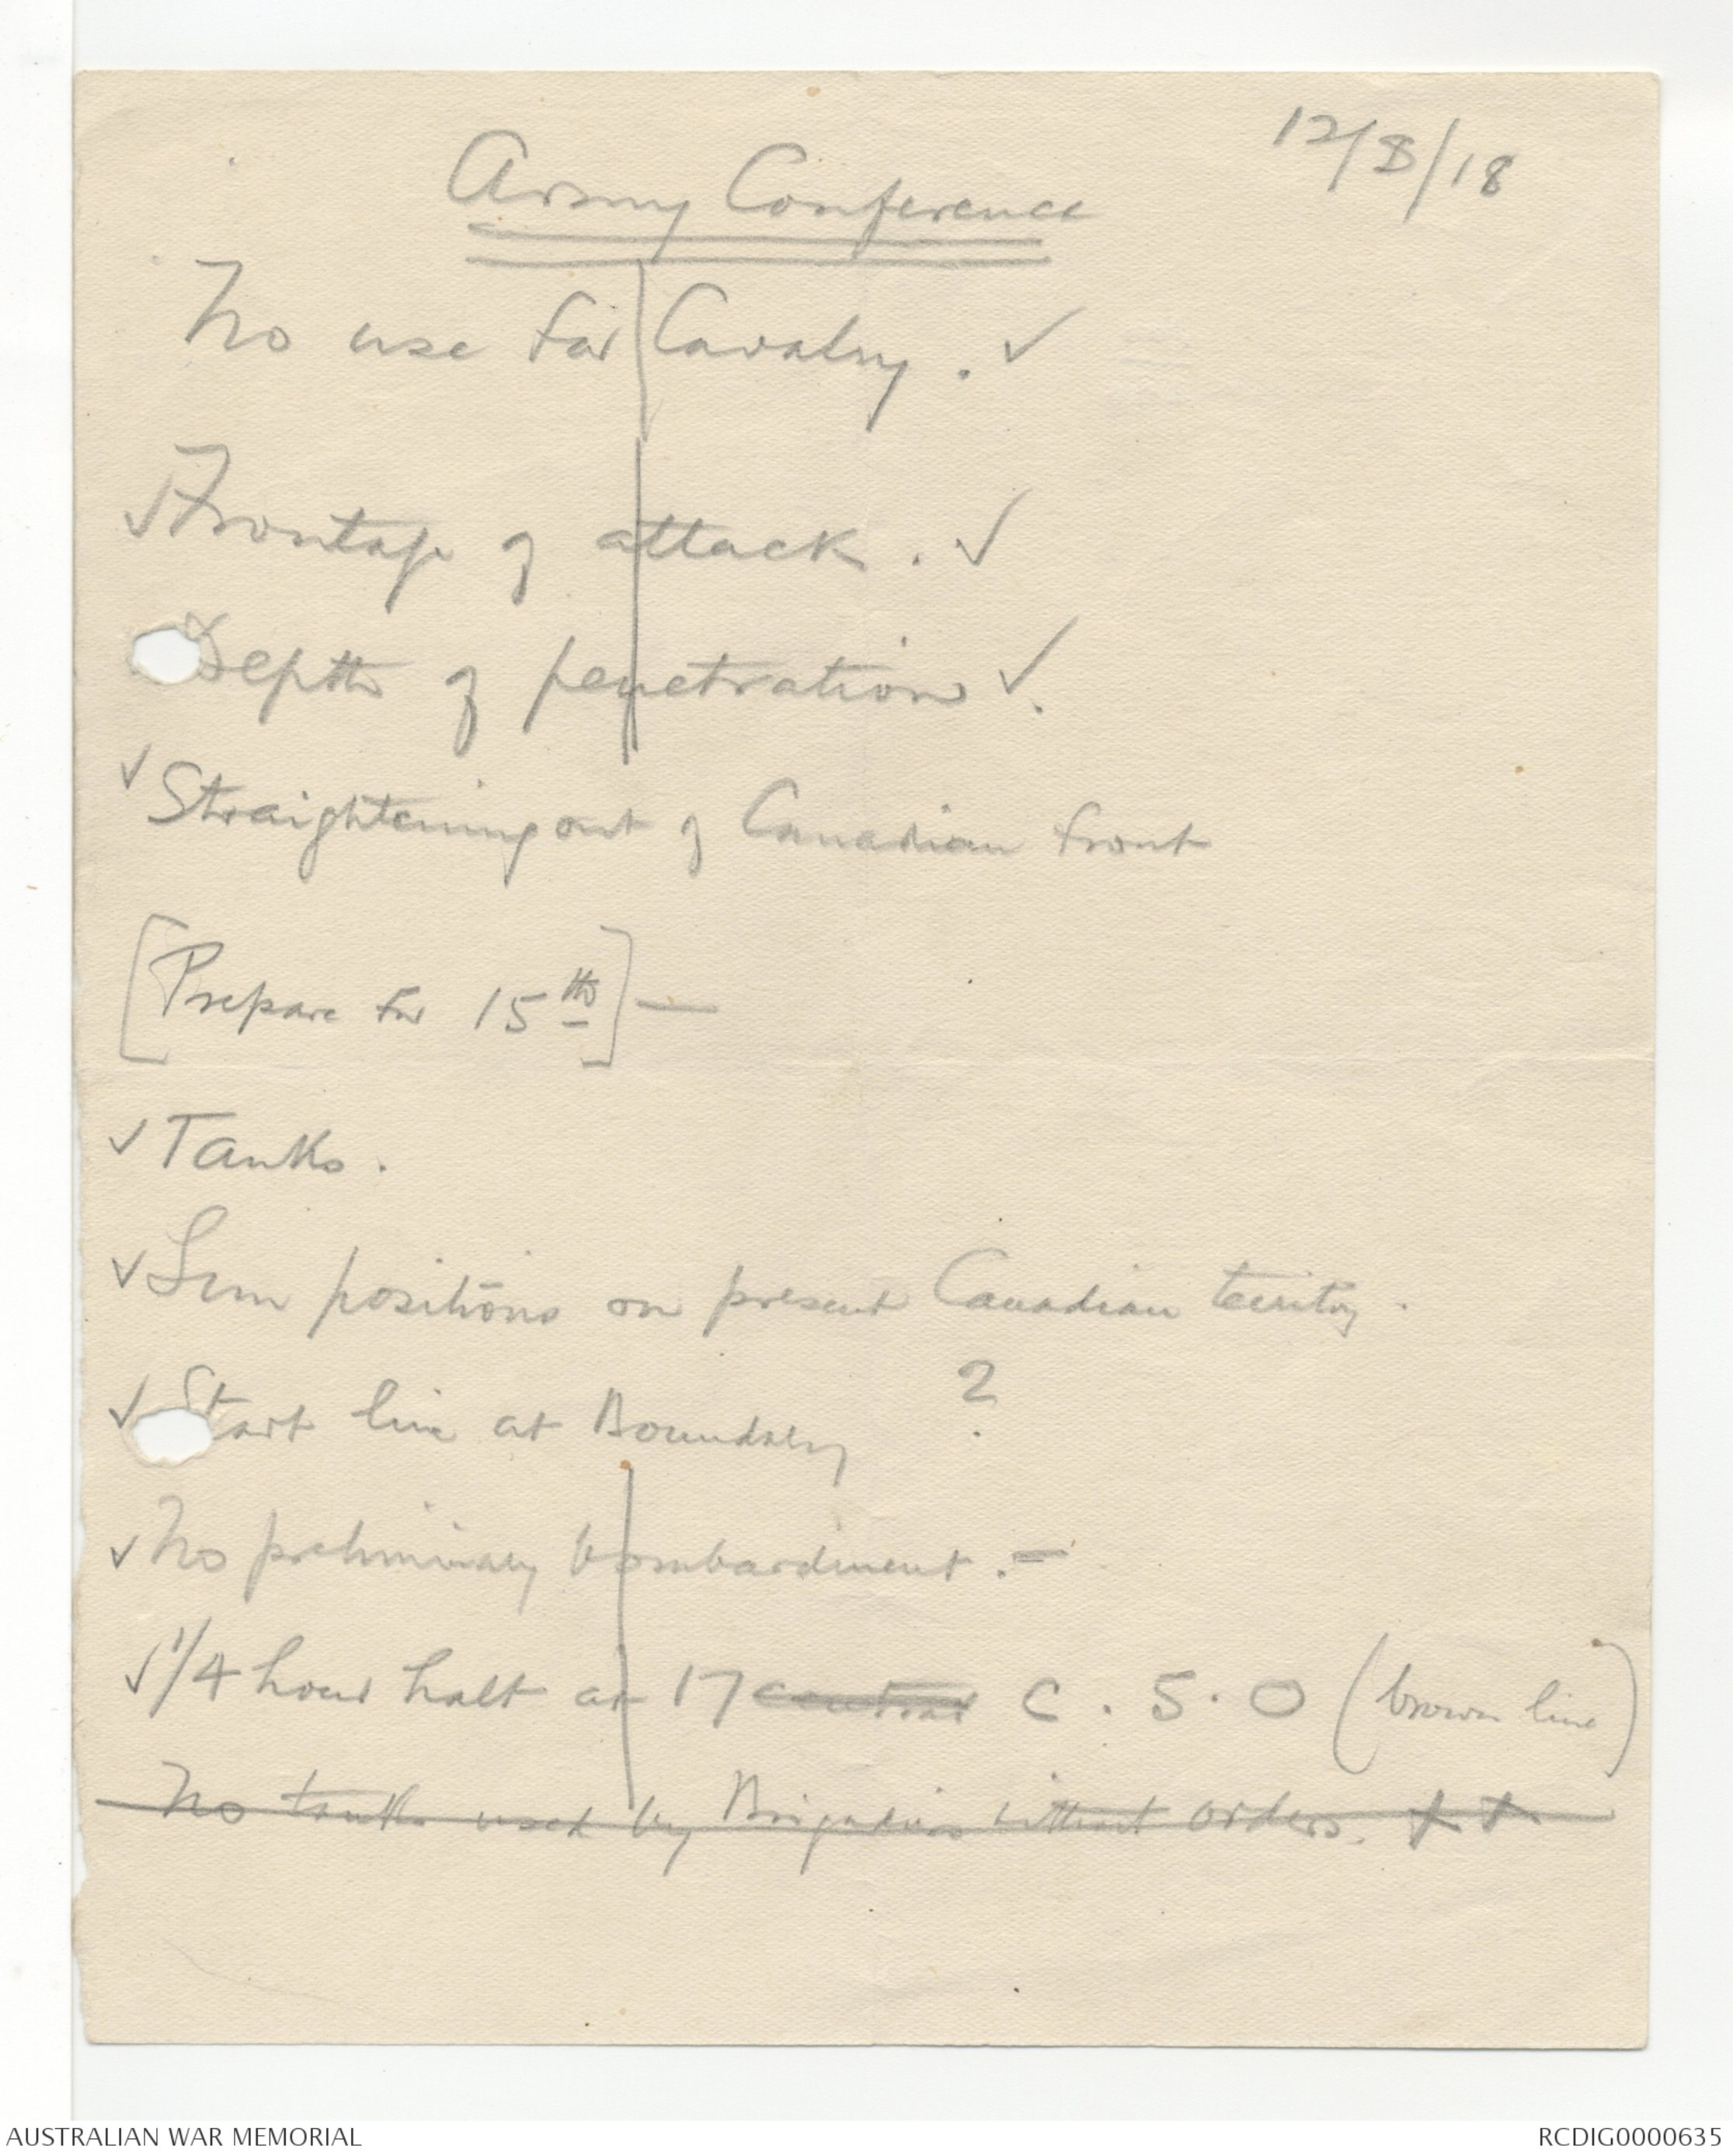 12/8/18
Army Conference
No use for Cavalry. ✓
✓ Frontage of attack. ✓
Depth of penetration ✓.
✓ Straightening out of Canadian front
[Prepare for 15th] —
✓ Tanks.
✓ Gun positions on present Canadian territory.
✓ Start line at Boundary ?
✓ No preliminary bombardment. —
✓ 1/4 hour halt at 17 central C. 5. 0 (brown line)
No tanks used by Brigadiers without orders. ++
AUSTRALIAN WAR MEMORIAL
RCDIG0000635